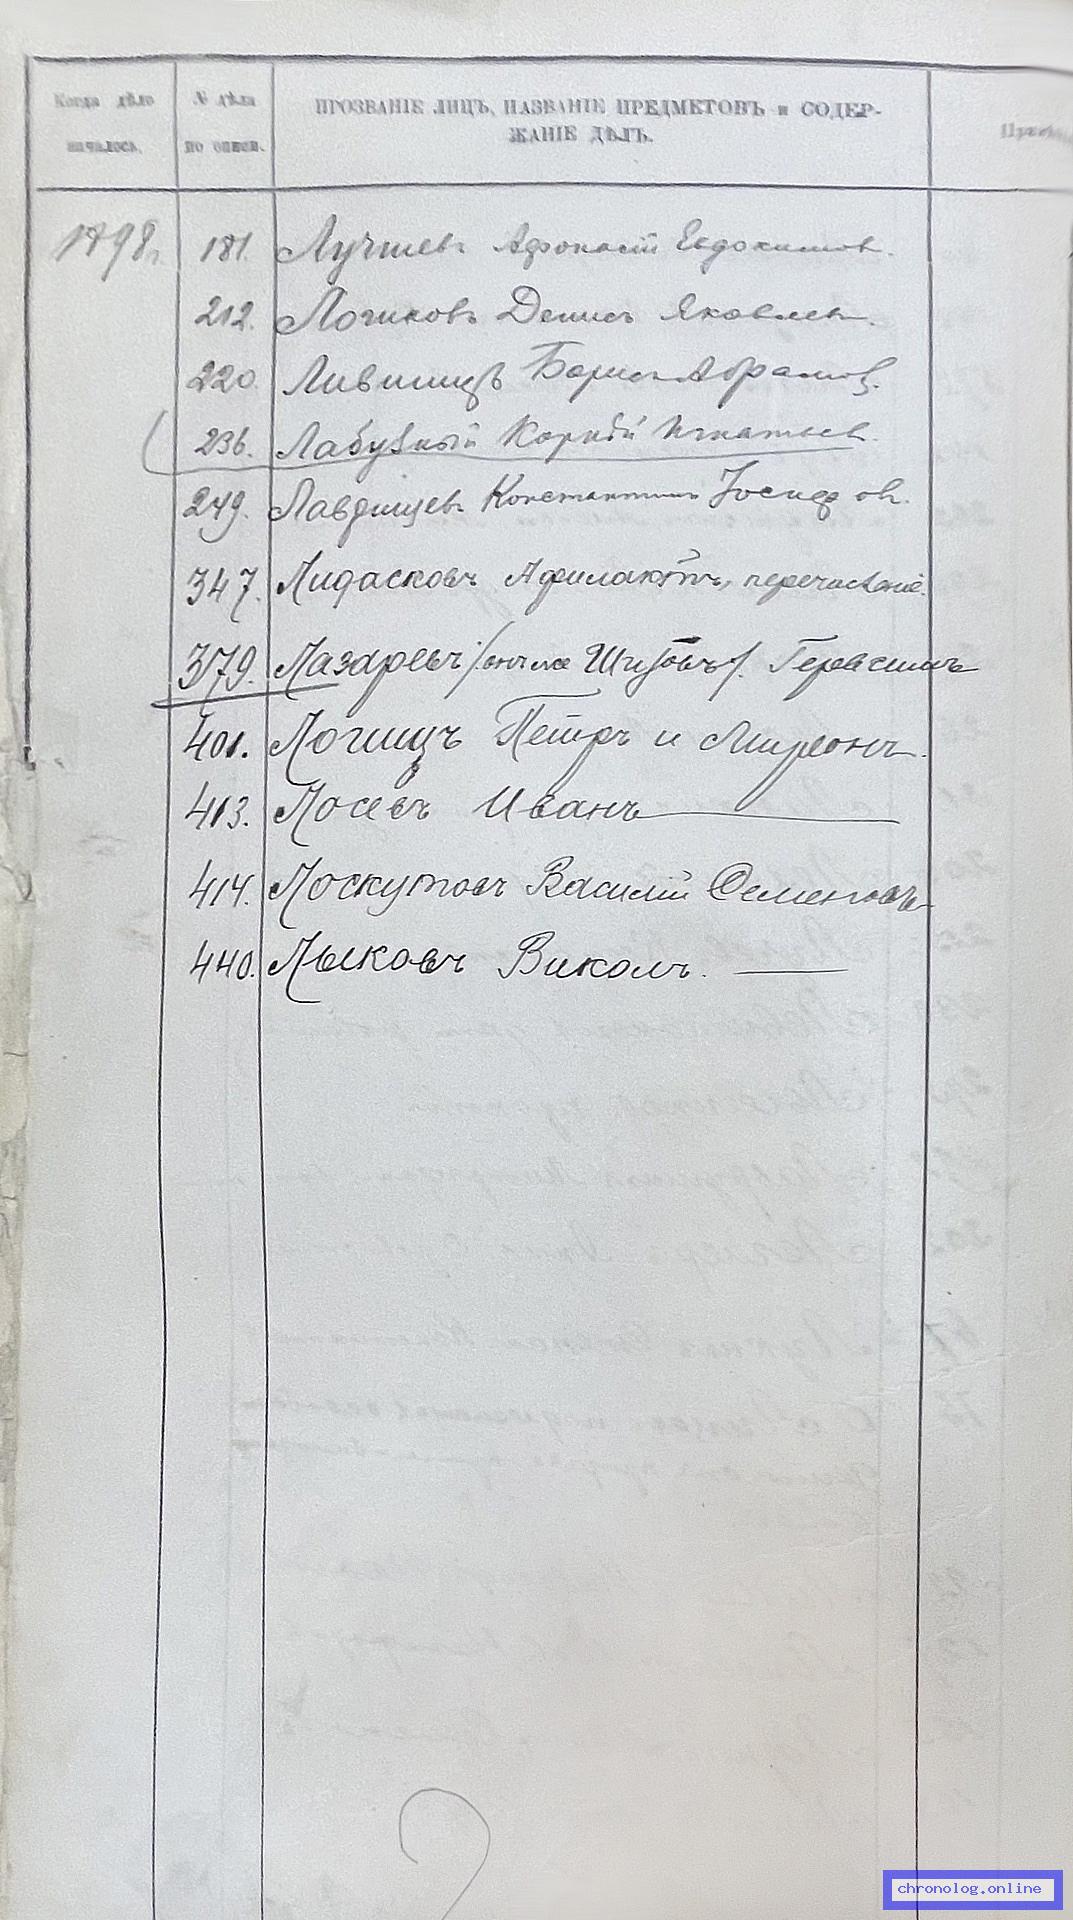 Когда дѣло началось.
№ дѣла по описи.
ПРОЗВАНІЕ ЛИЦЪ, НАЗВАНІЕ ПРЕДМЕТОВЪ и СОДЕР-
ЖАНІЕ ДѢЛЪ.
1898г.
181. Лучшевъ Афонасій Евдокимов.
212. Логиновъ Денисъ Яковлев.
220. Лившицъ Борисъ Абрамов.
236. Лабузный Корнѣй Игнатьев.
249. Константинъ Іосифов.
347. Лидасковъ перечисленіе.
379. Лазаревъ /онъ же Шиловъ/. Герасимъ
401. Логицъ Петръ и Миронъ.
413. Лосевъ Иванъ
414. Лоскутовъ Василій Семеновъ
440. Лыковъ Виколъ.
chronolog.online